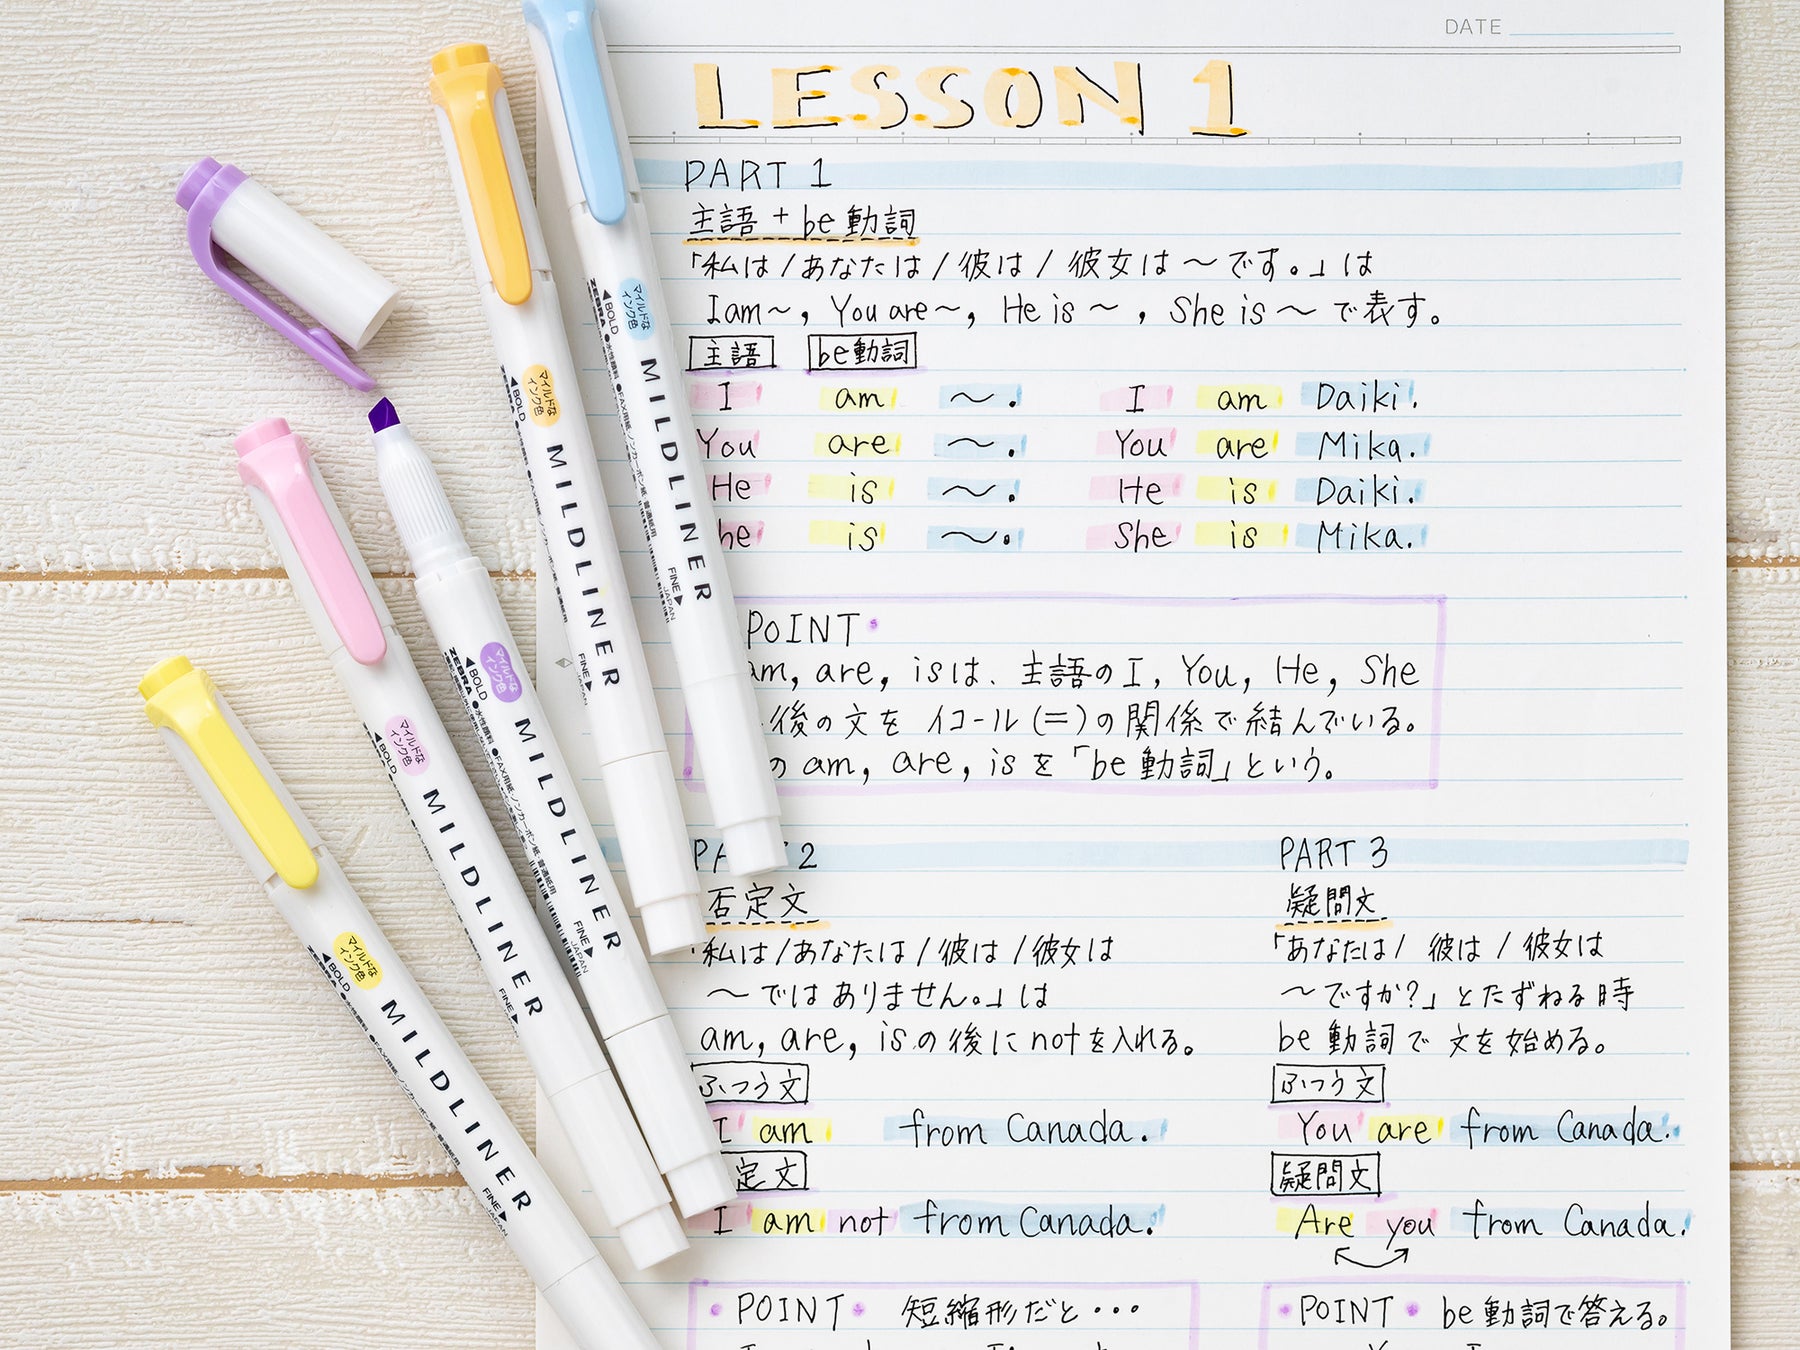 DATE
LESSON 1
PART 1
主語 + be動詞
「私は/あなたは/彼は/彼女は～です。」は
I am～, You are～, He is～, She is～で表す。
主語 be動詞
I am ～. I am Daiki.
You are ～. You are Mika.
He is ～. He is Daiki.
he is ～. She is Mika.
POINT
am, are, isは、主語のI, You, He, She
後の文をイコール(=)の関係で結んでいる。
の am, are, isを「be動詞」という。
PA 2
否定文
「私は/あなたは/彼は/彼女は
～ではありません。」は
am, are, isの後にnotを入れる。
ふつう文
I am from Canada.
定文
I am not from Canada.
POINT 短縮形だと・・・
PART 3
疑問文
「あなたは/彼は/彼女は
～ですか?」とたずねる時
be動詞で文を始める。
ふつう文
You are from Canada.
疑問文
Are you from Canada.
POINT be動詞で答える。
マイルドな
インク色
◀BOLD
ZEBRA
MILDLINER
FINE▶
JAPAN
マイルドな
インク色
◀BOLD
ZEBRA
MILDLINER
FINE▶
JAPAN
マイルドな
インク色
◀BOLD
ZEBRA
MILDLINER
FINE▶
JAPAN
マイルドな
インク色
◀BOLD
MILDLINER
FINE▶
マイルドな
インク色
◀BOLD
ZEBRA
MILDLINER
FINE▶
JAPAN